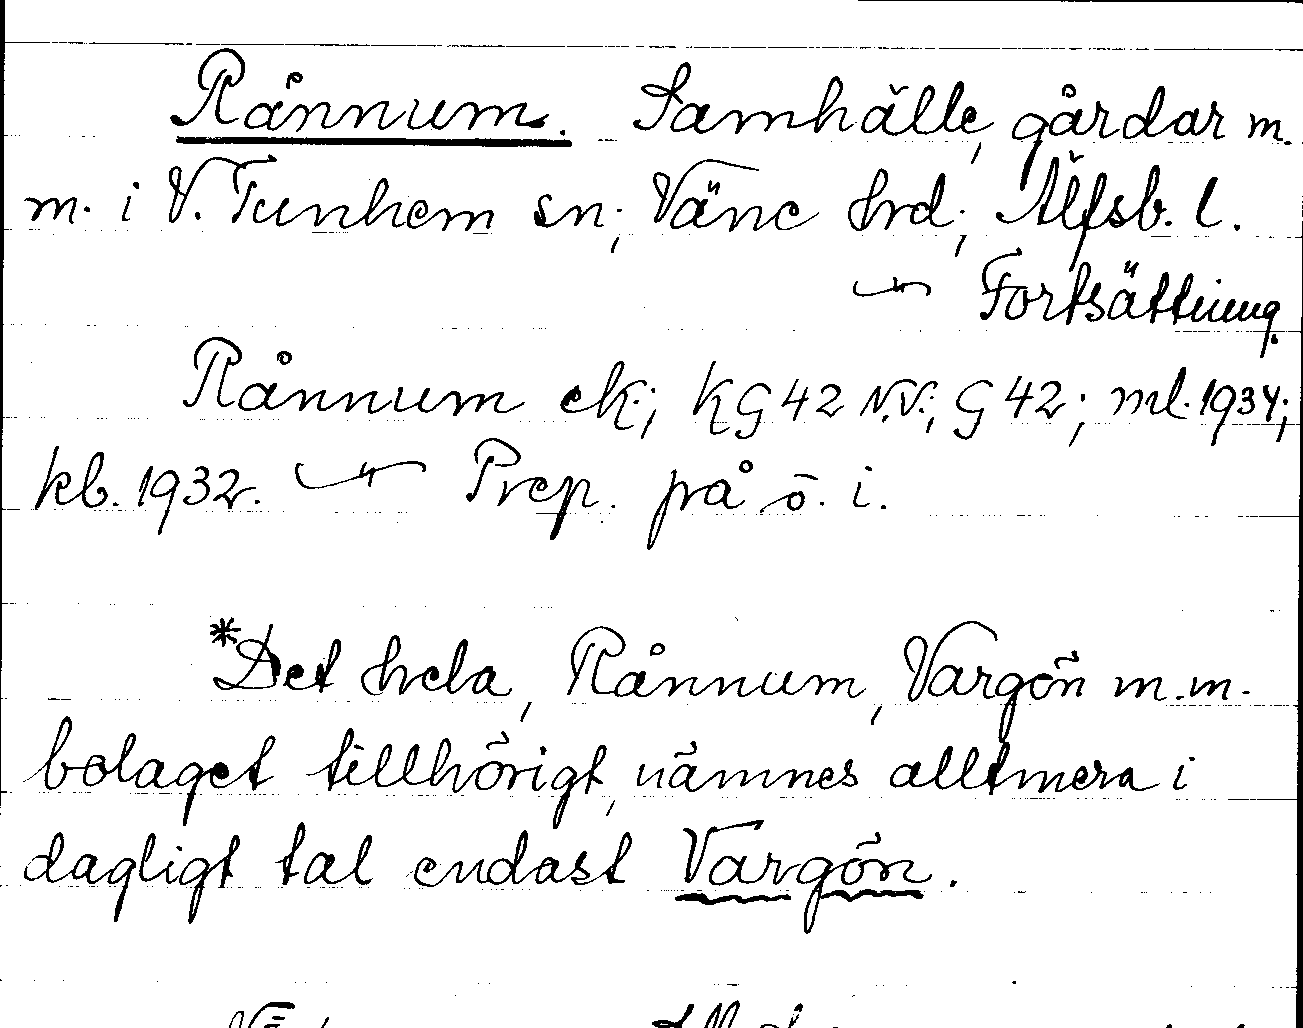 Rånnum. Samhälle, gårdar m.
m. i V. Tunhem sn; Väne hrd; Älfsb. l.
Fortsättning.
Rånnum ek; KG 42 N.V.; G 42; ml. 1934;
kb. 1932. Prep. på ö. i.
*Det hela, Rånnum, Vargön m.m.
bolaget tillhörigt, nämnes alltmera i
dagligt tal endast Vargön.